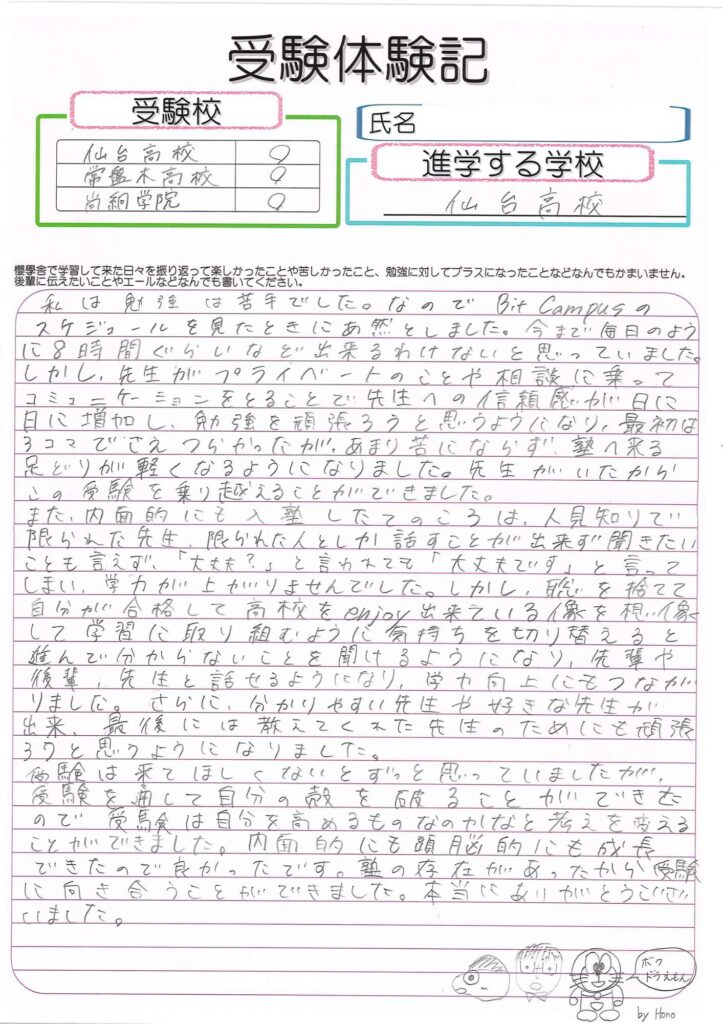 受験体験記
受験校
仙台高校 ○
常盤木高校 ○
尚絅学院 ○
氏名
進学する学校
仙台高校
櫻學舎で学習して来た日々を振り返って楽しかったことや苦しかったこと、勉強に対してプラスになったことなどなんでもかまいません。
後輩に伝えたいことやエールなどなんでも書いてください。
私は勉強は苦手でした。なので Bit Campusの
スケジュールを見たときにあ然としました。今まで毎日のよう
に8時間ぐらいなど出来るわけないと思っていました。
しかし、先生がプライベートのことや相談に乗って
コミュニケーションをとることで先生への信頼感が日に
日に増加し、勉強を頑張ろうと思うようになり、最初は
3コマでさえつらかったが、あまり苦にならず、塾へ来る
足どりが軽くなるようになりました。先生がいたから
この受験を乗り越えることができました。
また、内面的にも入塾したてのころは、人見知りで
限られた先生、限られた人としか話すことが出来ず聞きたい
ことも言えず、「大丈夫?」と言われても「大丈夫です」と言って
しまい、学力が上がりませんでした。しかし、恥を捨てて
自分が合格して高校をenjoy出来ている像を想像
して学習に取り組むように気持ちを切り替えると
進んで分からないことを聞けるようになり、先輩や
後輩、先生と話せるようになり、学力向上にもつなが
りました。さらに、分かりやすい先生や好きな先生が
出来、最後には教えてくれた先生のためにも頑張
ろうと思うようになりました。
受験は来てほしくないとずっと思っていましたが、
受験を通して自分の殻を破ることができた
ので受験は自分を高めるものなのかなと考えを変える
ことができました。内面的にも頭脳的にも成長
できたので良かったです。塾の存在があったから受験
に向き合うことができました。本当にありがとうござい
いました。
ボク
ドラえもん
by Hono